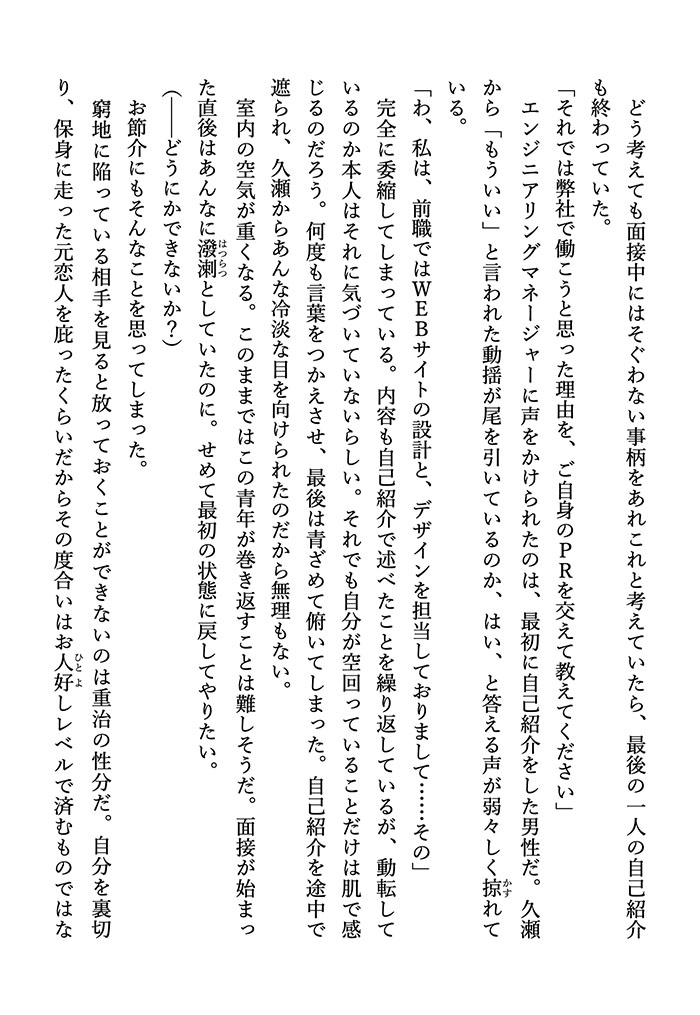 どう考えても面接中にはそぐわない事柄をあれこれと考えていたら、最後の一人の自己紹介
も終わっていた。
「それでは弊社で働こうと思った理由を、ご自身のＰＲを交えて教えてください」
エンジニアリングマネージャーに声をかけられたのは、最初に自己紹介をした男性だ。久瀬
から「もういい」と言われた動揺が尾を引いているのか、はい、と答える声が弱々しく掠れて
いる。
「わ、私は、前職ではＷＥＢサイトの設計と、デザインを担当しておりまして……その」
完全に委縮してしまっている。内容も自己紹介で述べたことを繰り返しているが、動転して
いるのか本人はそれに気づいていないらしい。それでも自分が空回っていることだけは肌で感
じるのだろう。何度も言葉をつかえさせ、最後は青ざめて俯いてしまった。自己紹介を途中で
遮られ、久瀬からあんな冷淡な目を向けられたのだから無理もない。
室内の空気が重くなる。このままではこの青年が巻き返すことは難しそうだ。面接が始まっ
た直後はあんなに潑溂としていたのに。せめて最初の状態に戻してやりたい。
（――どうにかできないか？）
お節介にもそんなことを思ってしまった。
窮地に陥っている相手を見ると放っておくことができないのは重治の性分だ。自分を裏切
り、保身に走った元恋人を庇ったくらいだからその度合いはお人好しレベルで済むものではな